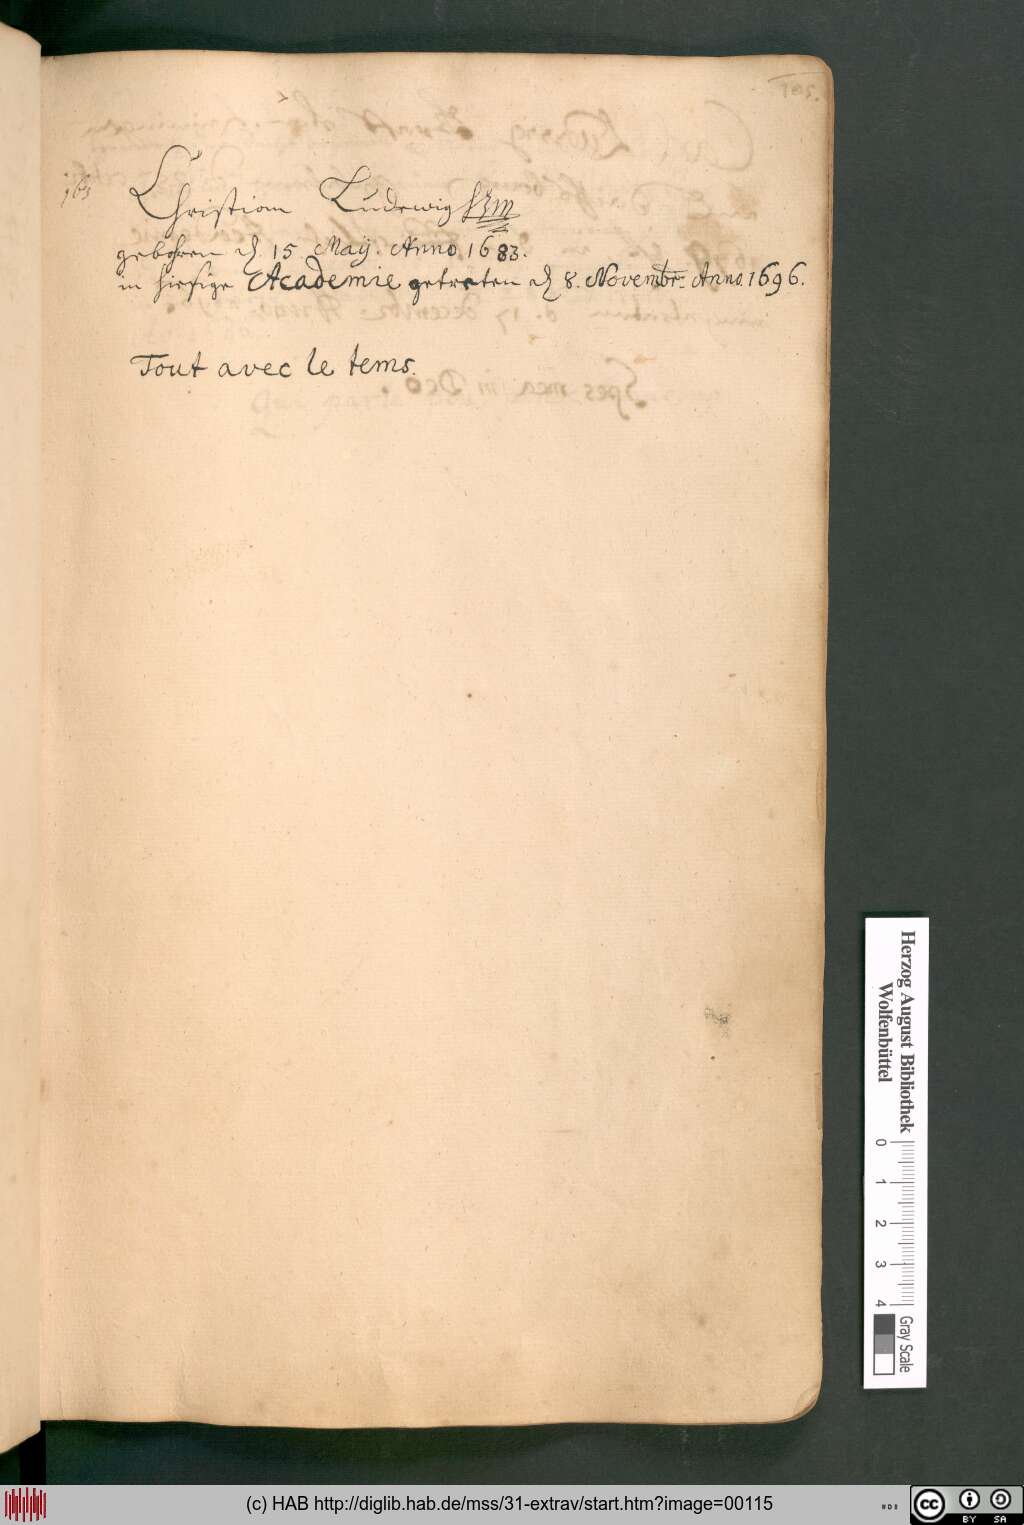 163
Christian Ludewig HZM
gebohren d. 15 Maÿ. Anno 1683.
in hiesige Academie getreten d. 8. Novembr. Anno. 1696.
Tout avec le tems.
Herzog August Bibliothek
Wolfenbüttel
0 1 2 3 4
Gray Scale
(c) HAB http://diglib.hab.de/mss/31-extrav/start.htm?image=00115
cc BY SA